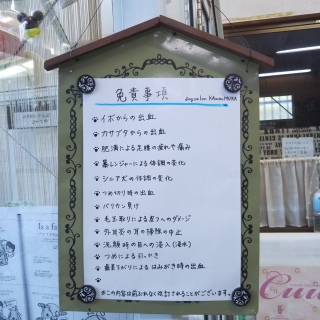 免責事項
dog salon KAwan MURA
イボからの出血
カサブタからの出血
肥満による足腰の疲れや痛み
暑レンジャーによる体調の変化
シニア犬の体調の変化
つめ切り時の出血
バリカン負け
毛玉取りによる皮フへのダメージ
外耳炎の耳の掃除の中止
洗顔時の目への浸入(浸水)
つめによる引っかき
垂直下がりによるはみがき時の出血
※この内容は前ぶれなく改訂されることがございます。
Is a fa